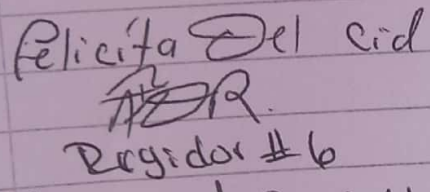 Felicita Del Cid
Regidor #6